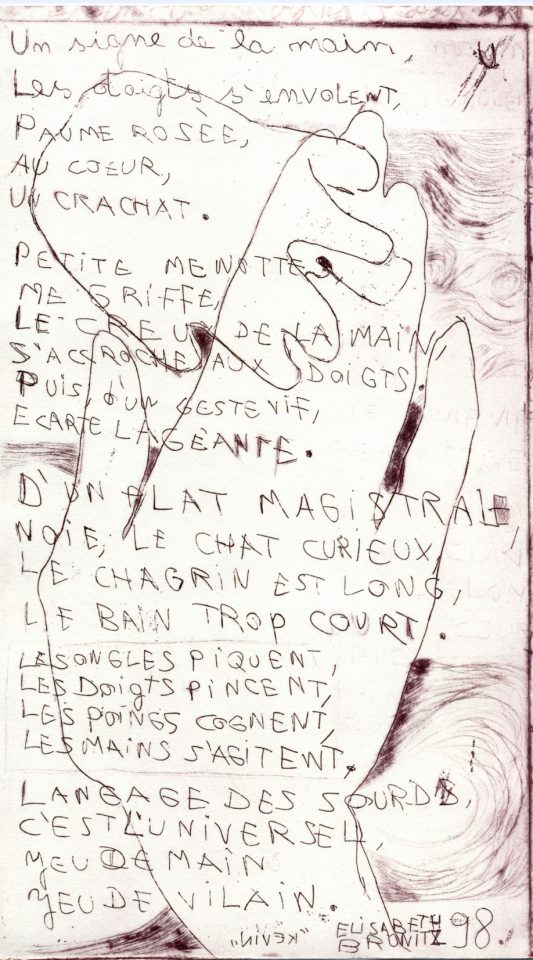 Un signe de la main,
Les doigts s'envolent,
PAUME ROSÈE,
AU COEUR,
UN CRACHAT.
PETITE MENOTTE
ME GRIFFE,
LE CREUX DE LA MAIN,
S'ACCROCHE AUX DOIGTS.
PUIS, d'UN GESTE VIF,
ECARTE LA GÈANTE.
D'UN PLAT MAGISTRAL,
NOIE, LE CHAT CURIEUX,
LE CHAGRIN EST LONG,
LE BAIN TROP COURT.
LES ONGLES PIQUENT,
LES Doigts PINCENT,
LES POINGS COGNENT,
LES MAINS S'AGITENT,
LANGAGE DES SOURDS,
C'EST L'UNIVERSEL,
JEU DE MAIN
JEU DE VILAIN.
"KEVIN"
ELISABETH
BRONITZ 98.